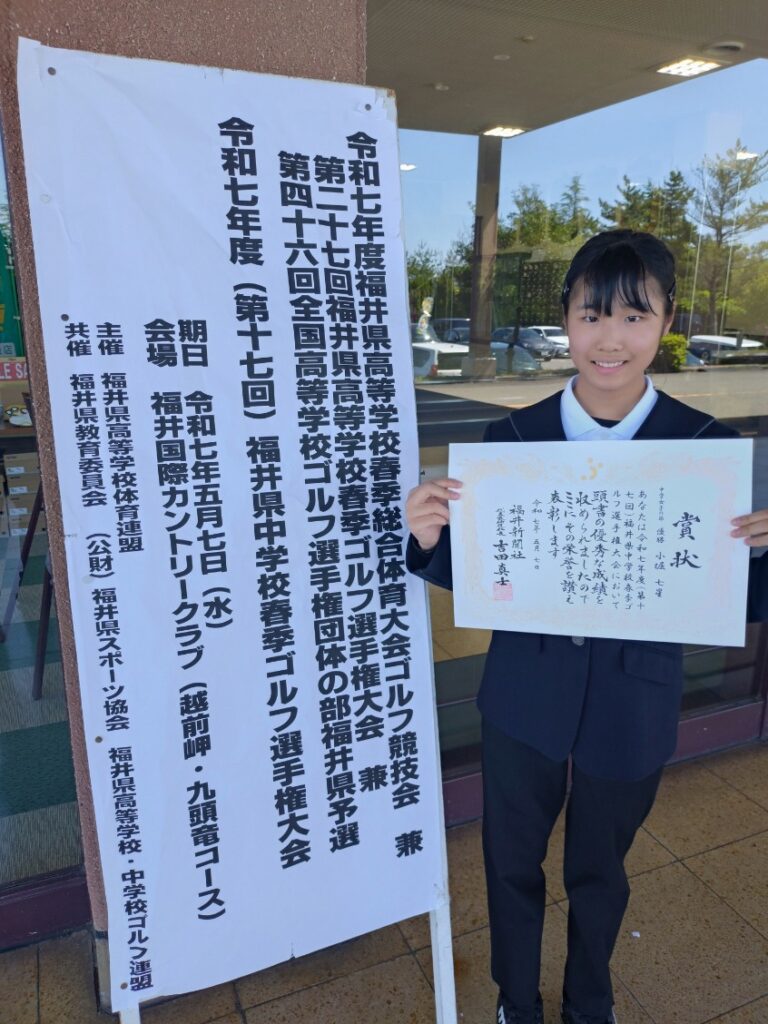 令和七年度福井県高等学校春季総合体育大会ゴルフ競技会　兼
第二十七回福井県高等学校春季ゴルフ選手権大会　兼
第四十六回全国高等学校ゴルフ選手権団体の部福井県予選
令和七年度（第十七回）福井県中学校春季ゴルフ選手権大会
期日　令和七年五月七日（水）
会場　福井国際カントリークラブ（越前岬・九頭竜コース）
主催　福井県高等学校体育連盟
共催　福井県教育委員会　（公財）福井県スポーツ協会　福井県高等学校・中学校ゴルフ連盟
賞状
中学女子の部　優勝　小堀　七星
あなたは令和七年度（第十
七回）福井県中学校春季ゴ
ルフ選手権大会において
頭書の優秀な成績を
収められましたので
ここにその栄誉を讃え
表彰します
令和七年　五月　七日
福井新聞社
吉田真士